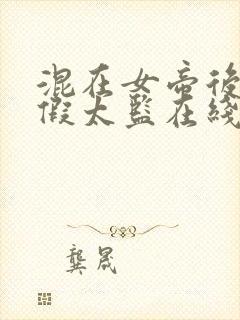 混在女帝後
假太監在綫
龔晟